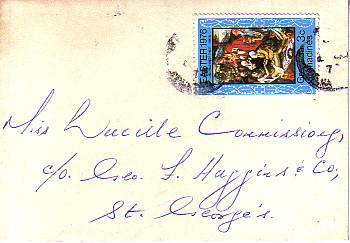 EASTER 1976
3c
Grenadines
7
Miss Lucille Commissiong,
c/o. Geo. F. Huggins & Co,
St. George's.